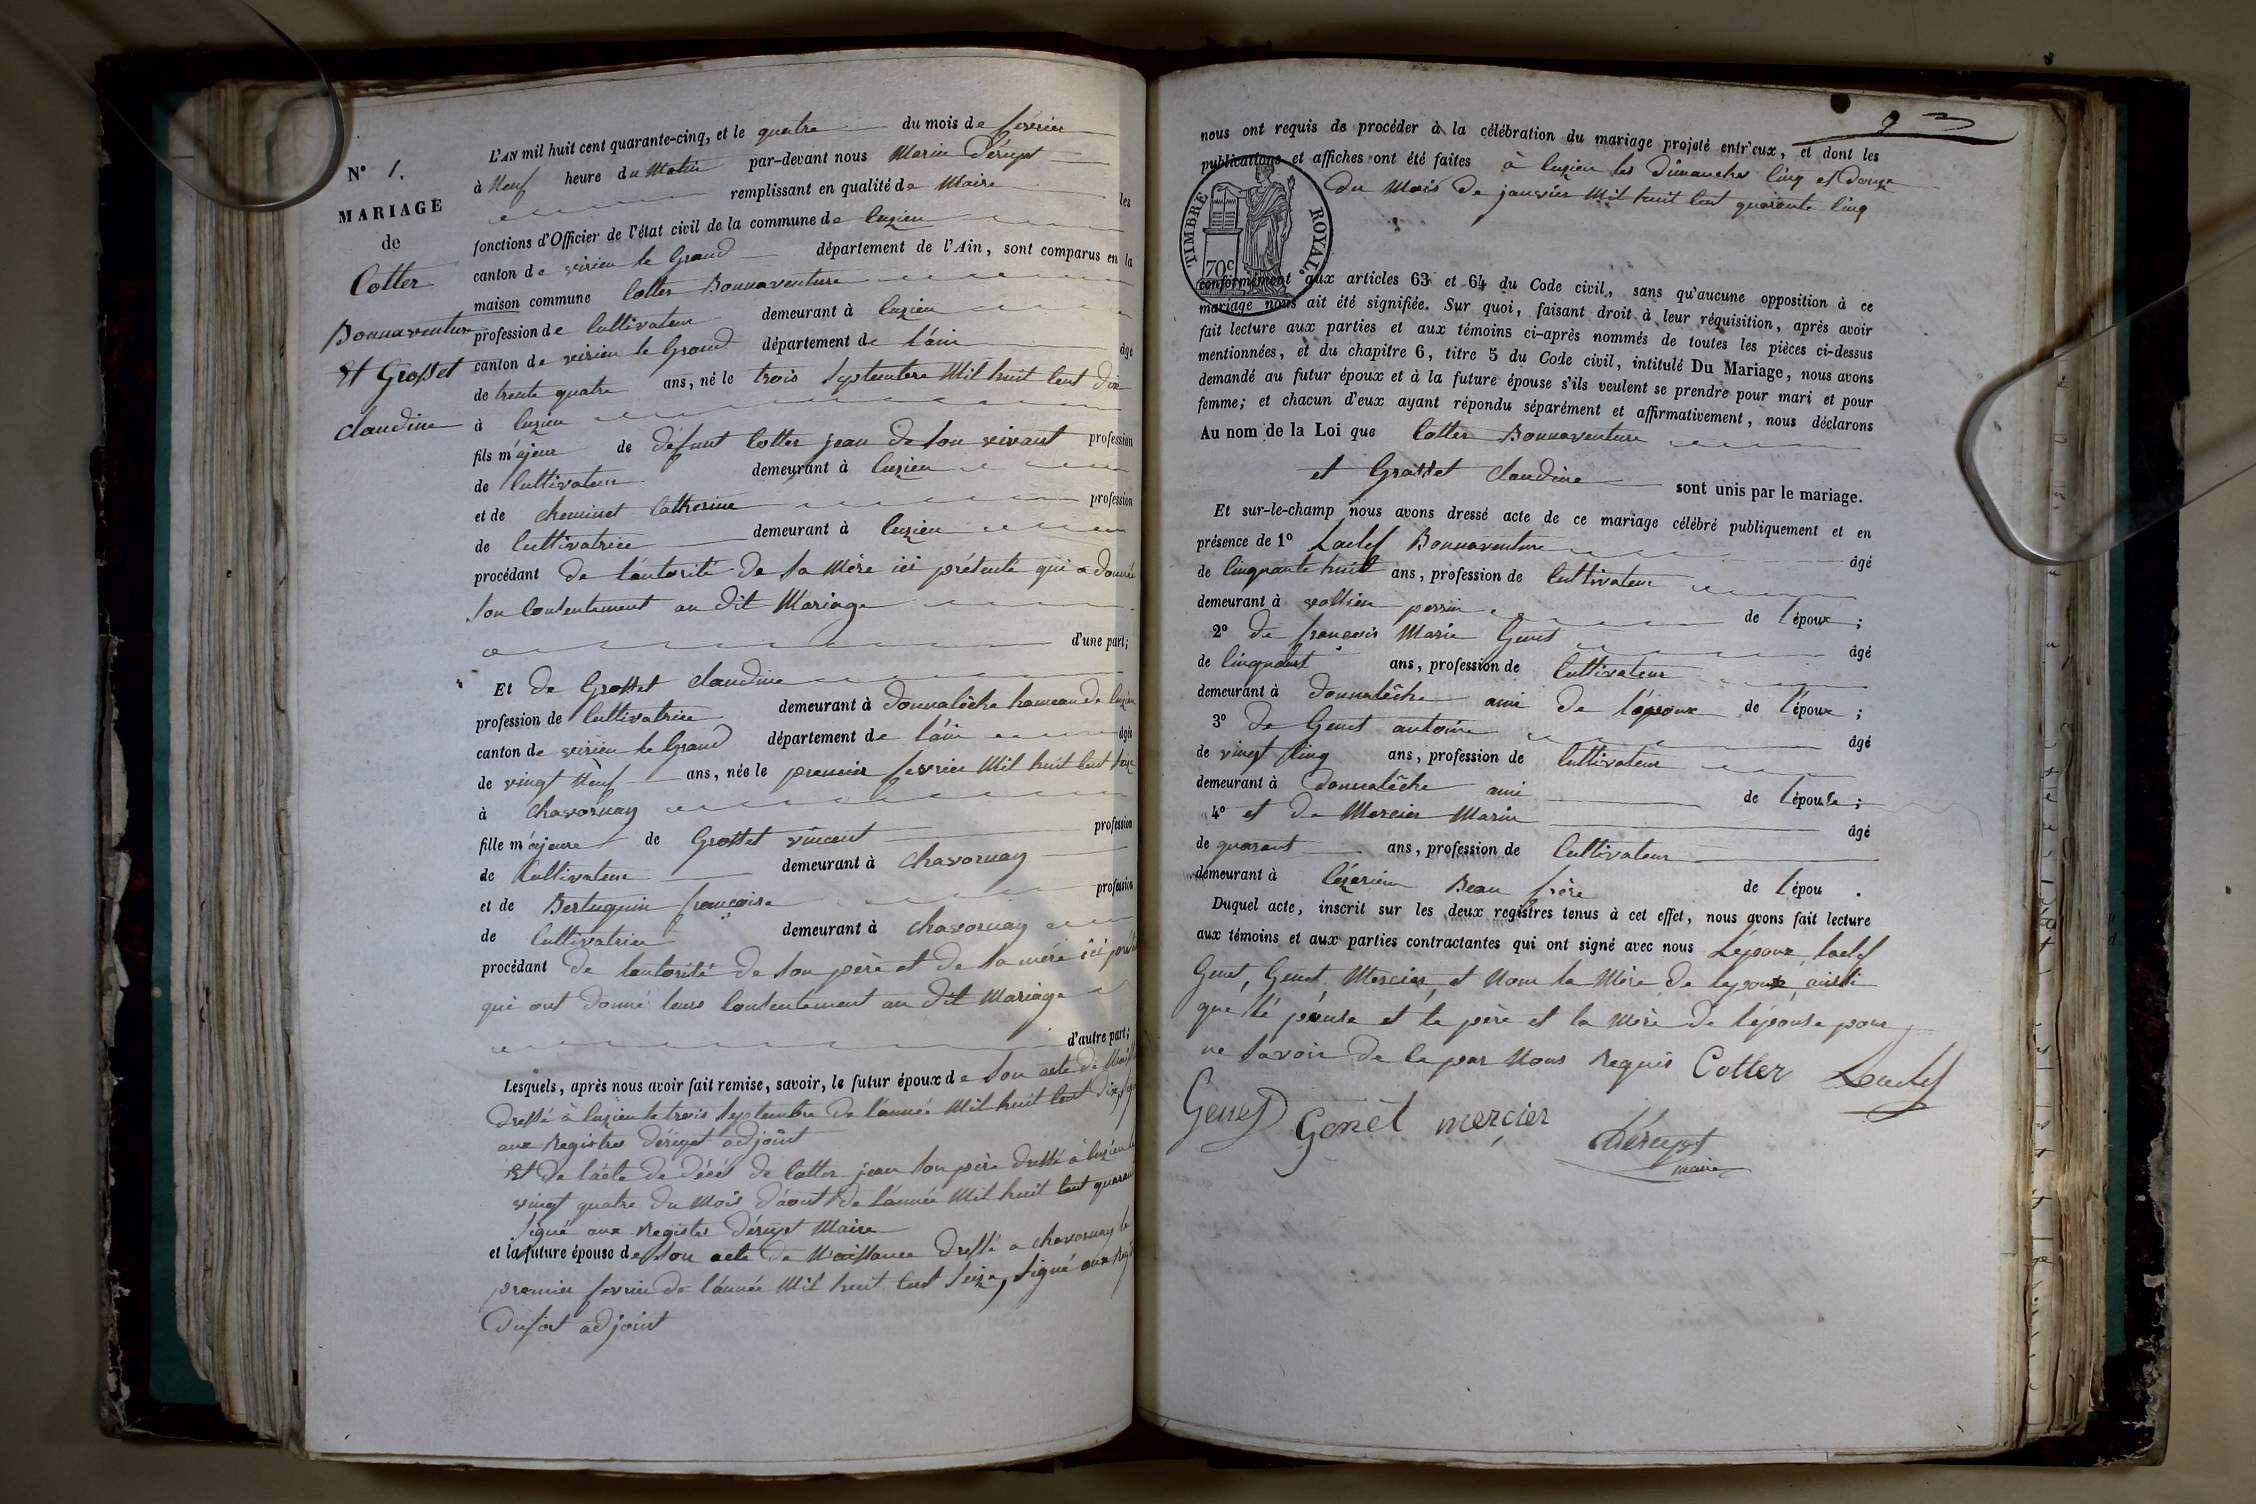 N° 1.
MARIAGE
de
Cotter
Bonnaventure
Et Grosset
claudine
L'AN mil huit cent quarante-cinq, et le quatre du mois de fevrier
à Neuf heure du Matin par-devant nous Marin Déruyt
remplissant en qualité de Maire les
fonctions d'Officier de l'état civil de la commune de luzieu
canton de virieu le Grand département de l'Ain, sont comparus en la
maison commune Cotter Bonnaventure
profession de Cultivateur demeurant à luzieu
canton de virieu le Grand département de l'ain âgé
de trente quatre ans, né le trois septembre Mil huit Cent dix
à luzieu
fils májeur de défunt Cotter jean de son vivant profession
de Cultivateur demeurant à luzieu
et de cheminet Catherine profession
de Cultivatrice demeurant à luzieu
procédant de l'autorité de sa Mère ici présente qui a donnée
son Consentement au dit Mariage
d'une part;
Et de Grosset claudine
profession de Cultivatrice demeurant à donnalêche hameau de luzieu
canton de virieu le Grand département de l'ain âgée
de vingt Neuf ans, née le premier fevrier Mil huit Cent seize
à chavornay
fille májeure de Grosset vincent profession
de Cultivateur demeurant à chavornay
et de Bertuquin françoise profession
de Cultivatrice demeurant à chavornay
procédant de l'autorité de son père et de sa mère ici
qui ont donné leurs Consentement au dit Mariage
d'autre part;
Lesquels, après nous avoir fait remise, savoir, le futur époux de son acte de
dressé à luzieu le trois septembre de l'année Mil huit Cent dix,
aux Registres Déruyt adjoint
Et de l'acte de décés de Cotter jean son père dressé à luzieu
vingt quatre du Mois d'aout de l'année Mil huit Cent
signé aux Registre Déruyt Maire
et la future épouse de son acte de Naissance dressé a chavornay le
premier fevrier de l'année Mil huit Cent seize, signé aux
Dufort adjoint
nous ont requis de procéder à la célébration du mariage projeté entr'eux, et dont les
publications et affiches ont été faites à luzieu les Dimanches Cinq et Douze
du Mois de janvier Mil huit Cent quarante Cinq
TIMBRE ROYAL.
70c
conformément aux articles 63 et 64 du Code civil, sans qu'aucune opposition à ce
mariage nous ait été signifiée. Sur quoi, faisant droit à leur réquisition, après avoir
fait lecture aux parties et aux témoins ci-après nommés de toutes les pièces ci-dessus
mentionnées, et du chapitre 6, titre 5 du Code civil, intitulé Du Mariage, nous avons
demandé au futur époux et à la future épouse s'ils veulent se prendre pour mari et pour
femme; et chacun d'eux ayant répondu séparément et affirmativement, nous déclarons
Au nom de la Loi que Cotter Bonnaventure
et Grosset claudine sont unis par le mariage.
Et sur-le-champ nous avons dressé acte de ce mariage célébré publiquement et en
présence de 1° Bonnaventure âgé
de Cinquante huit ans, profession de Cultivateur
demeurant à de l'époux;
2° de françois Marie Genet âgé
de Cinquant ans, profession de Cultivateur
demeurant à donnalêche ami de l'époux de l'époux;
3° de Genet antoine âgé
de vingt Cinq ans, profession de Cultivateur
demeurant à donnalêche ami de l'épouse;
4° et de Mercier Marin âgé
de quarant ans, profession de Cultivateur
demeurant à Beau frère de l'épou .
Duquel acte, inscrit sur les deux registres tenus à cet effet, nous avons fait lecture
aux témoins et aux parties contractantes qui ont signé avec nous L'époux,
Genet, Genet, Mercier, et Nom la Mère de lepoux, ainsi
que lé pouse et le père et la Mère de l'épouse pour
ne savoir de ce par Nous Requis Cotter
Genet Genet mercier Déruyt
maire